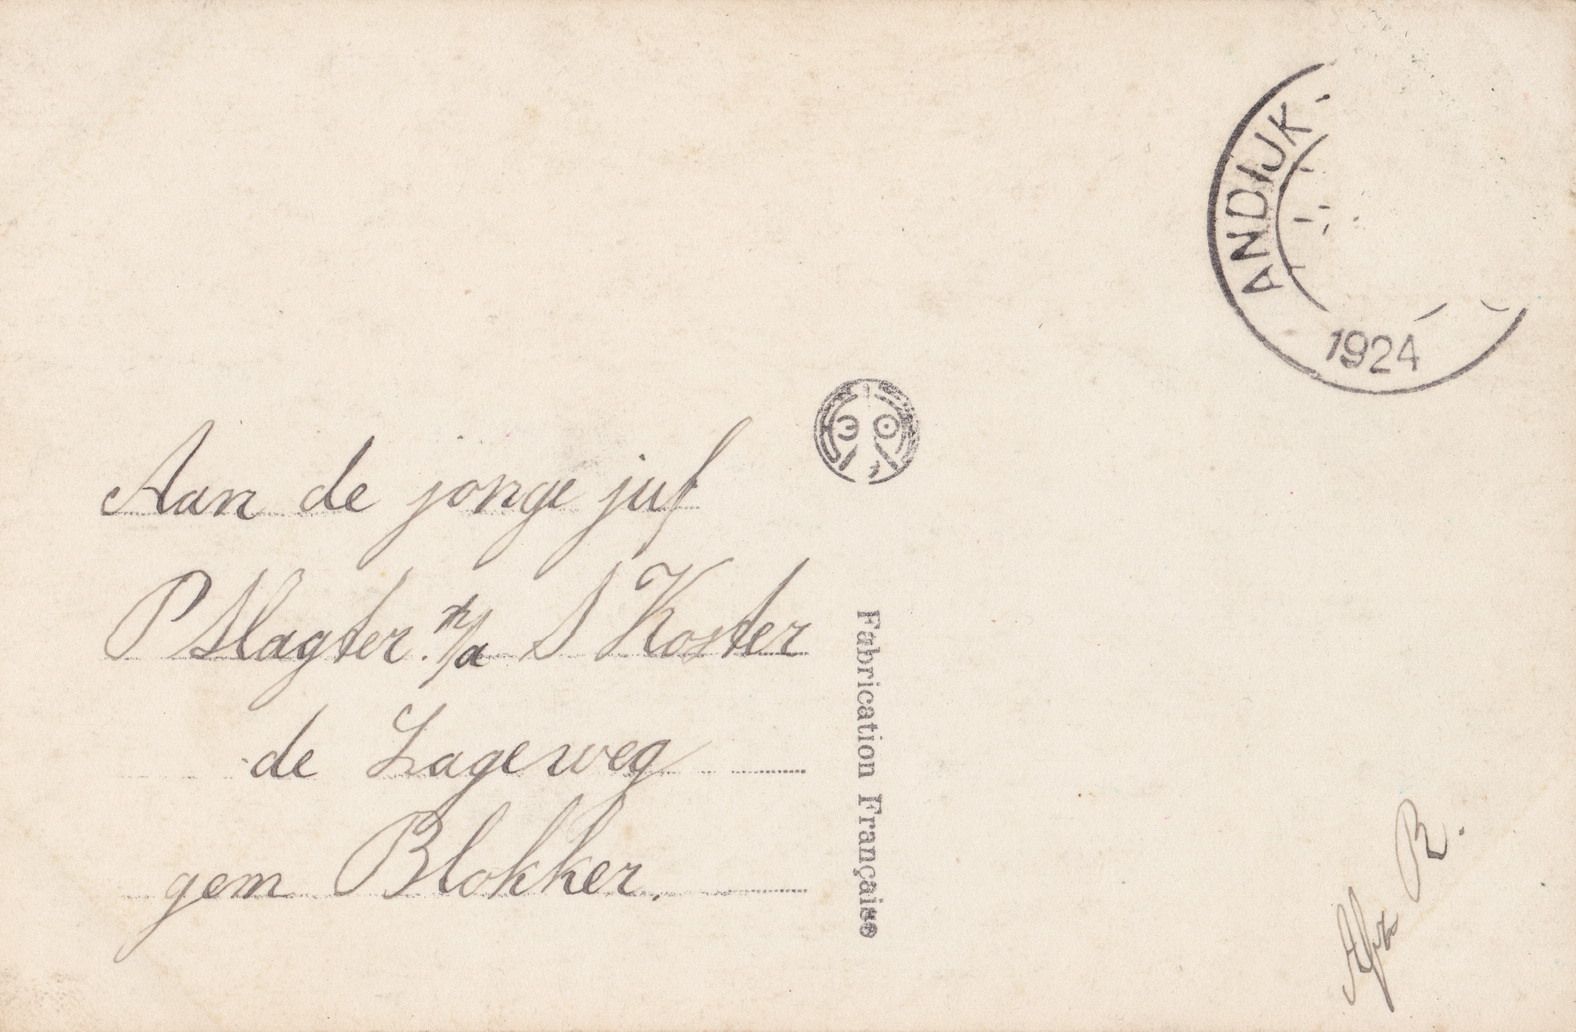 ANDIJK
1924
Aan de jonge juf
P Slagter p/a S Koster
de Lageweg
gem Blokker.
Fabrication Française
Afz R.